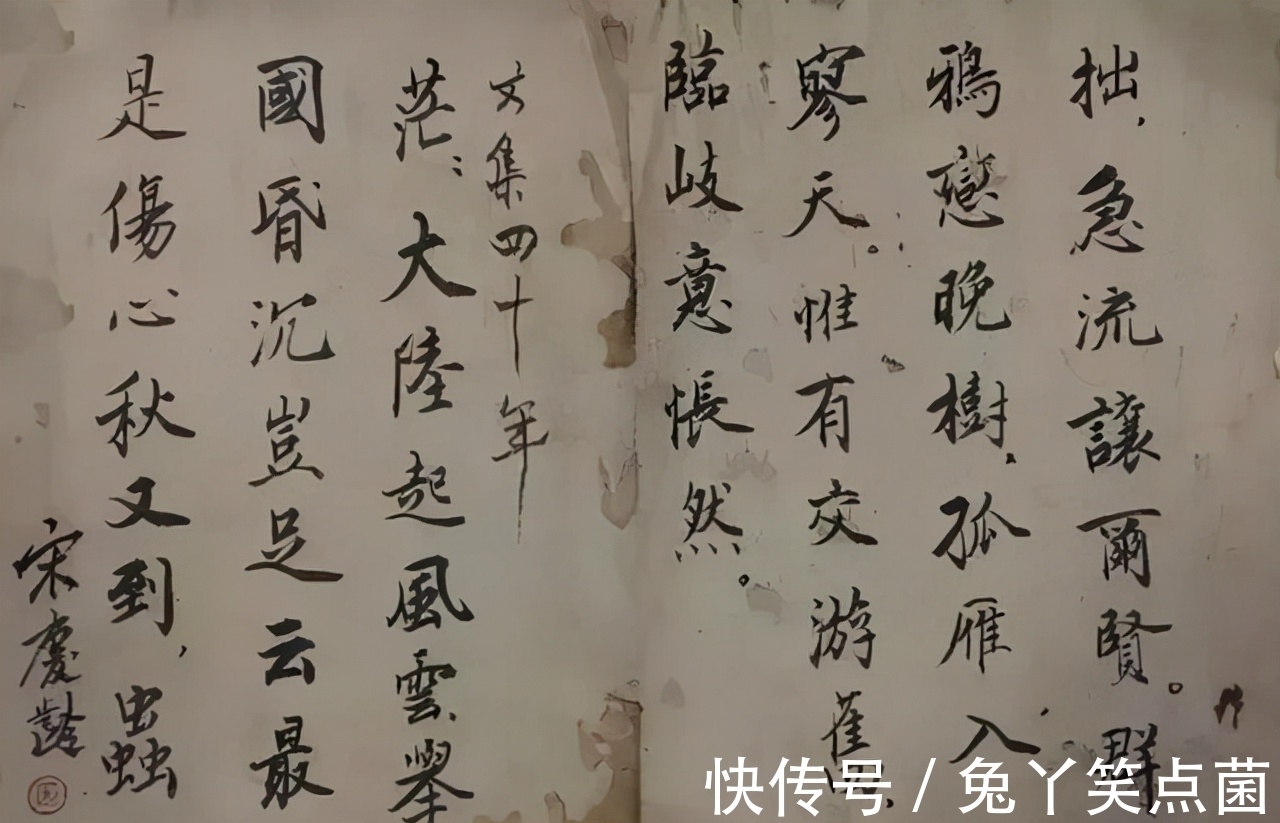 拙，急流讓爾賢。群
鴉戀晚樹，孤雁入
寥天。惟有交游舊，
臨岐意悵然。
文集四十年
茫：大陸起風雲，舉
國昏沉豈足云最
是傷心秋又到，蟲
宋慶齡
快传号 / 兔丫笑点菌